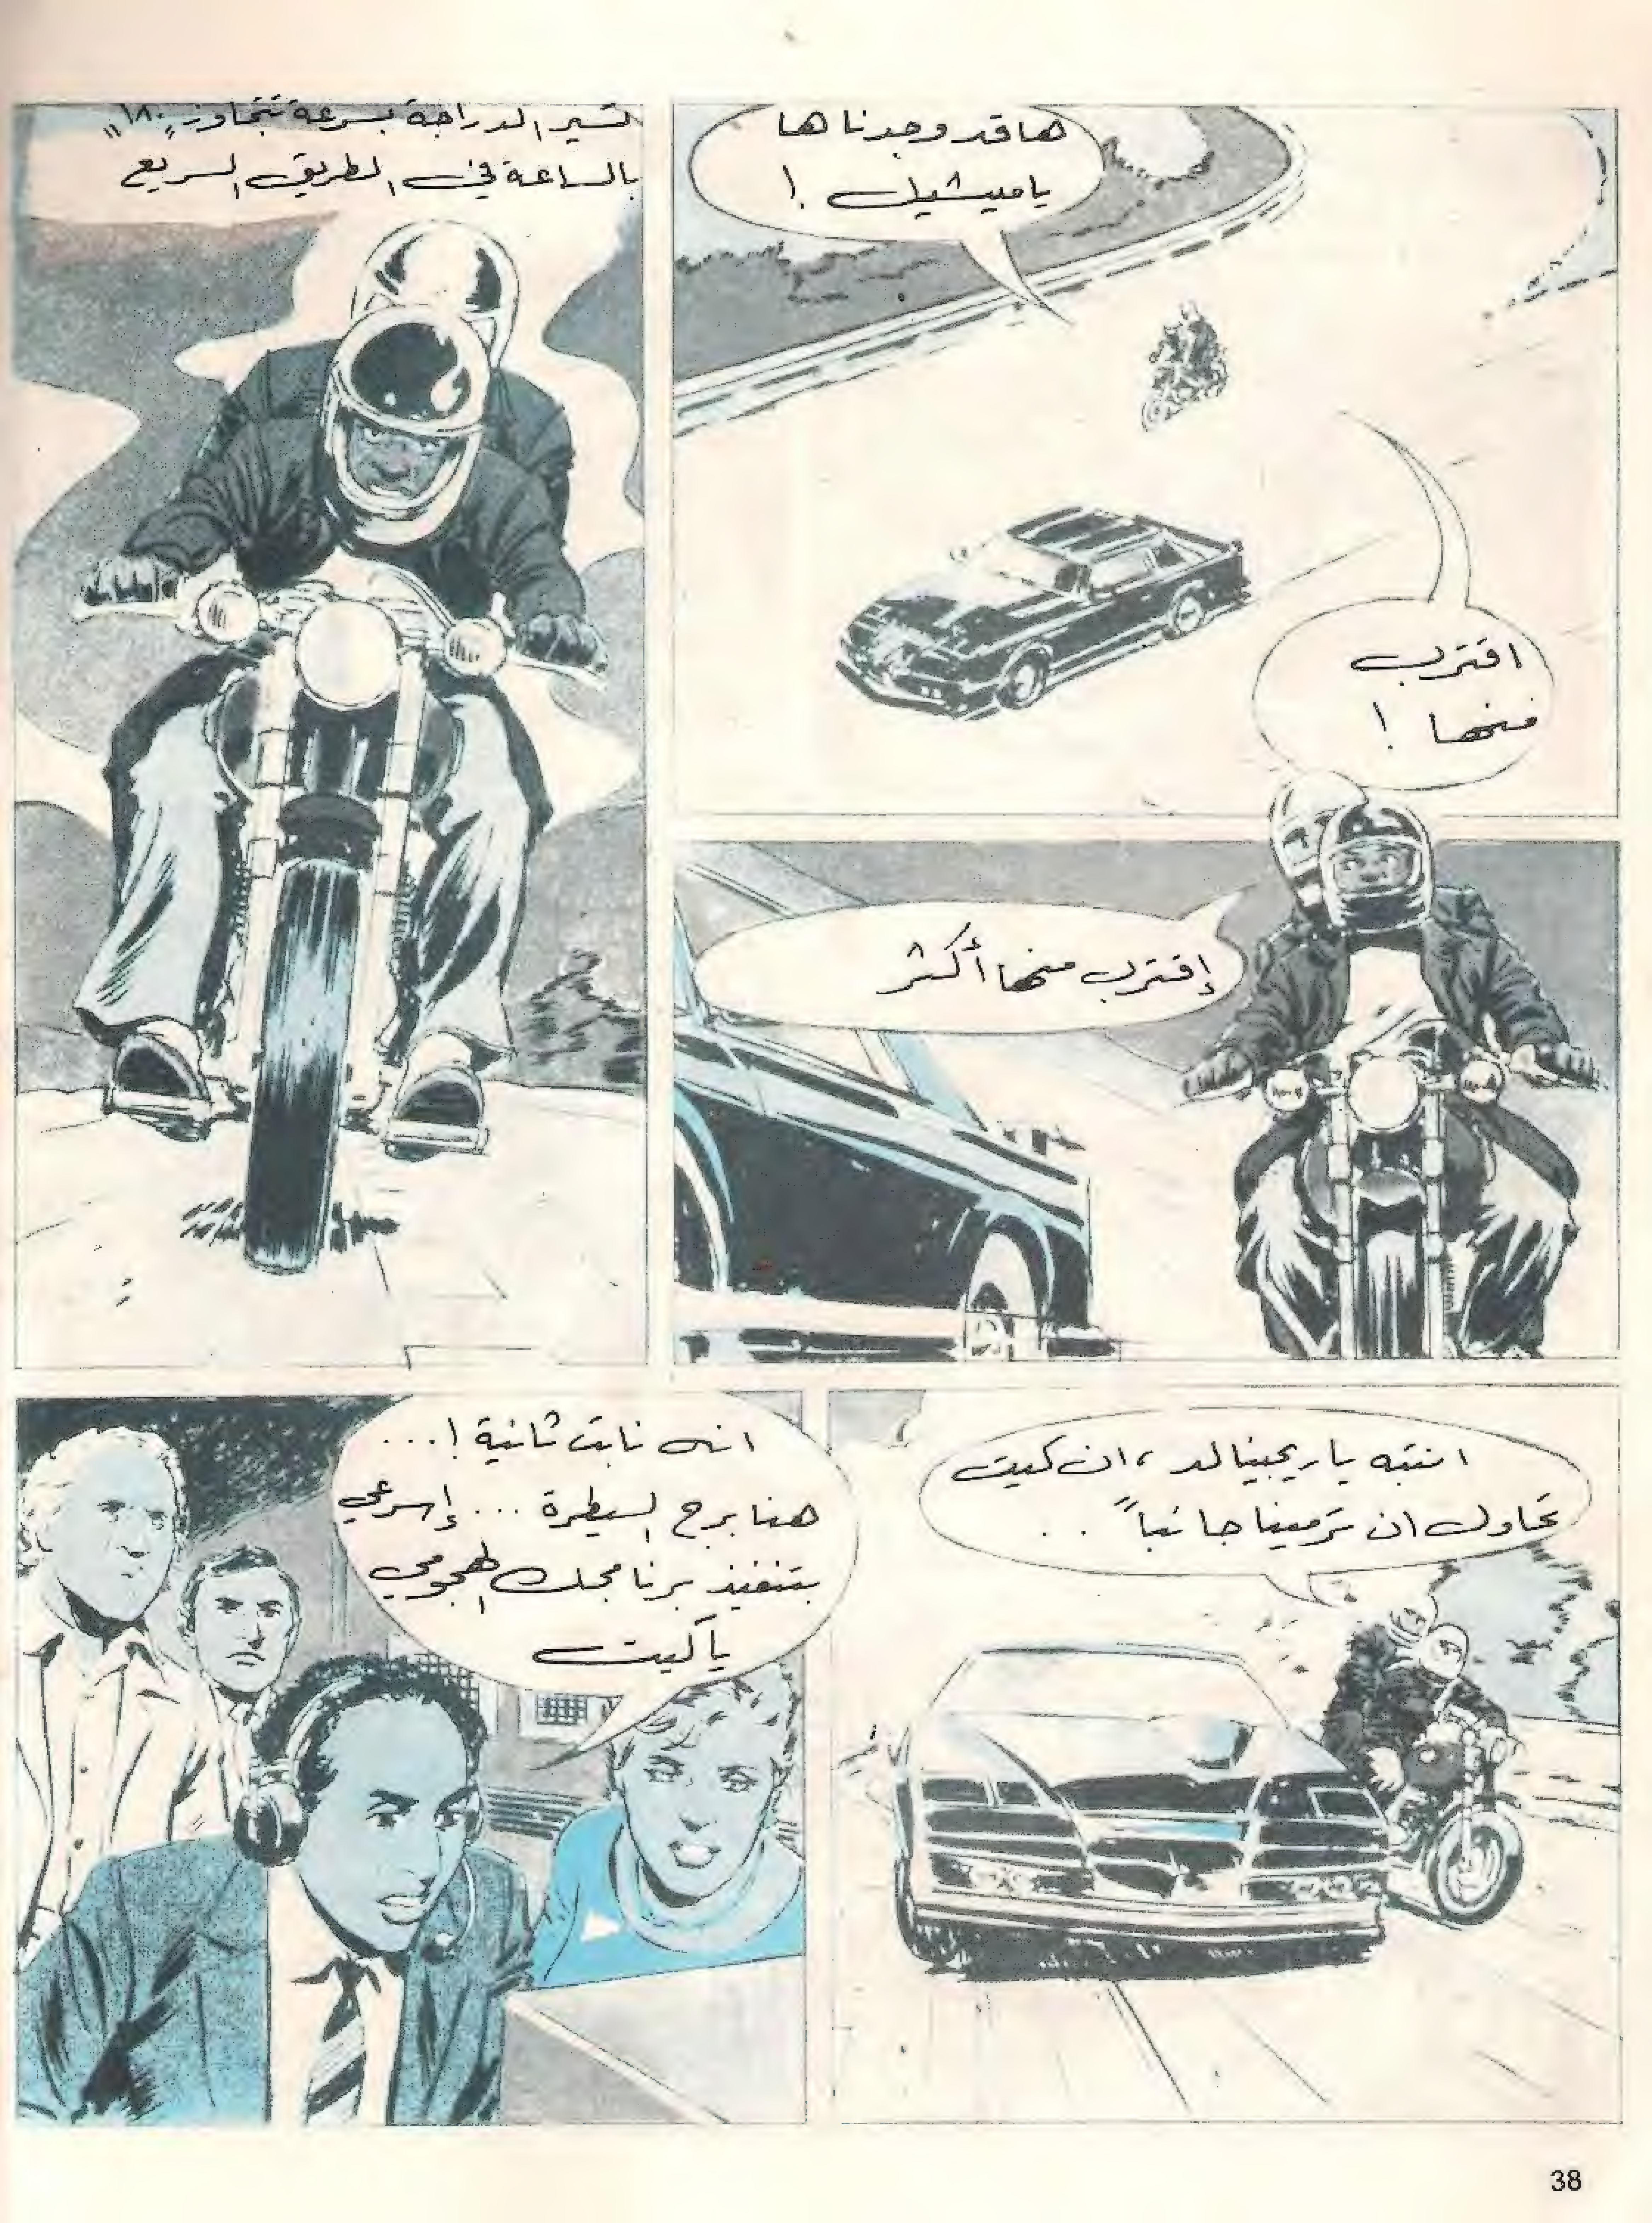 ها قد وجدناها
يا ميشيل !
اقترب
منها !
تسير الدراجة بسرعة تتجاوز "١٨٠"
بالساعة في الطريق السريع
إقترب منها أكثر
انتبه يا ريجينالد ، ان كيت
تحاول ان ترمينا جانباً . .
انه نابت ثانية ! ...
هنا برج السيطرة ... إسرعي
بتنفيذ برنامجك الهجومي
يا كيت
38